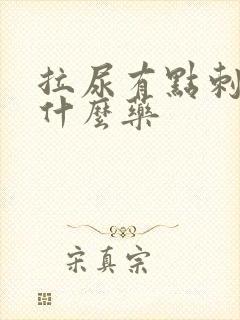 拉尿有點刺
什麼藥
宋真宗